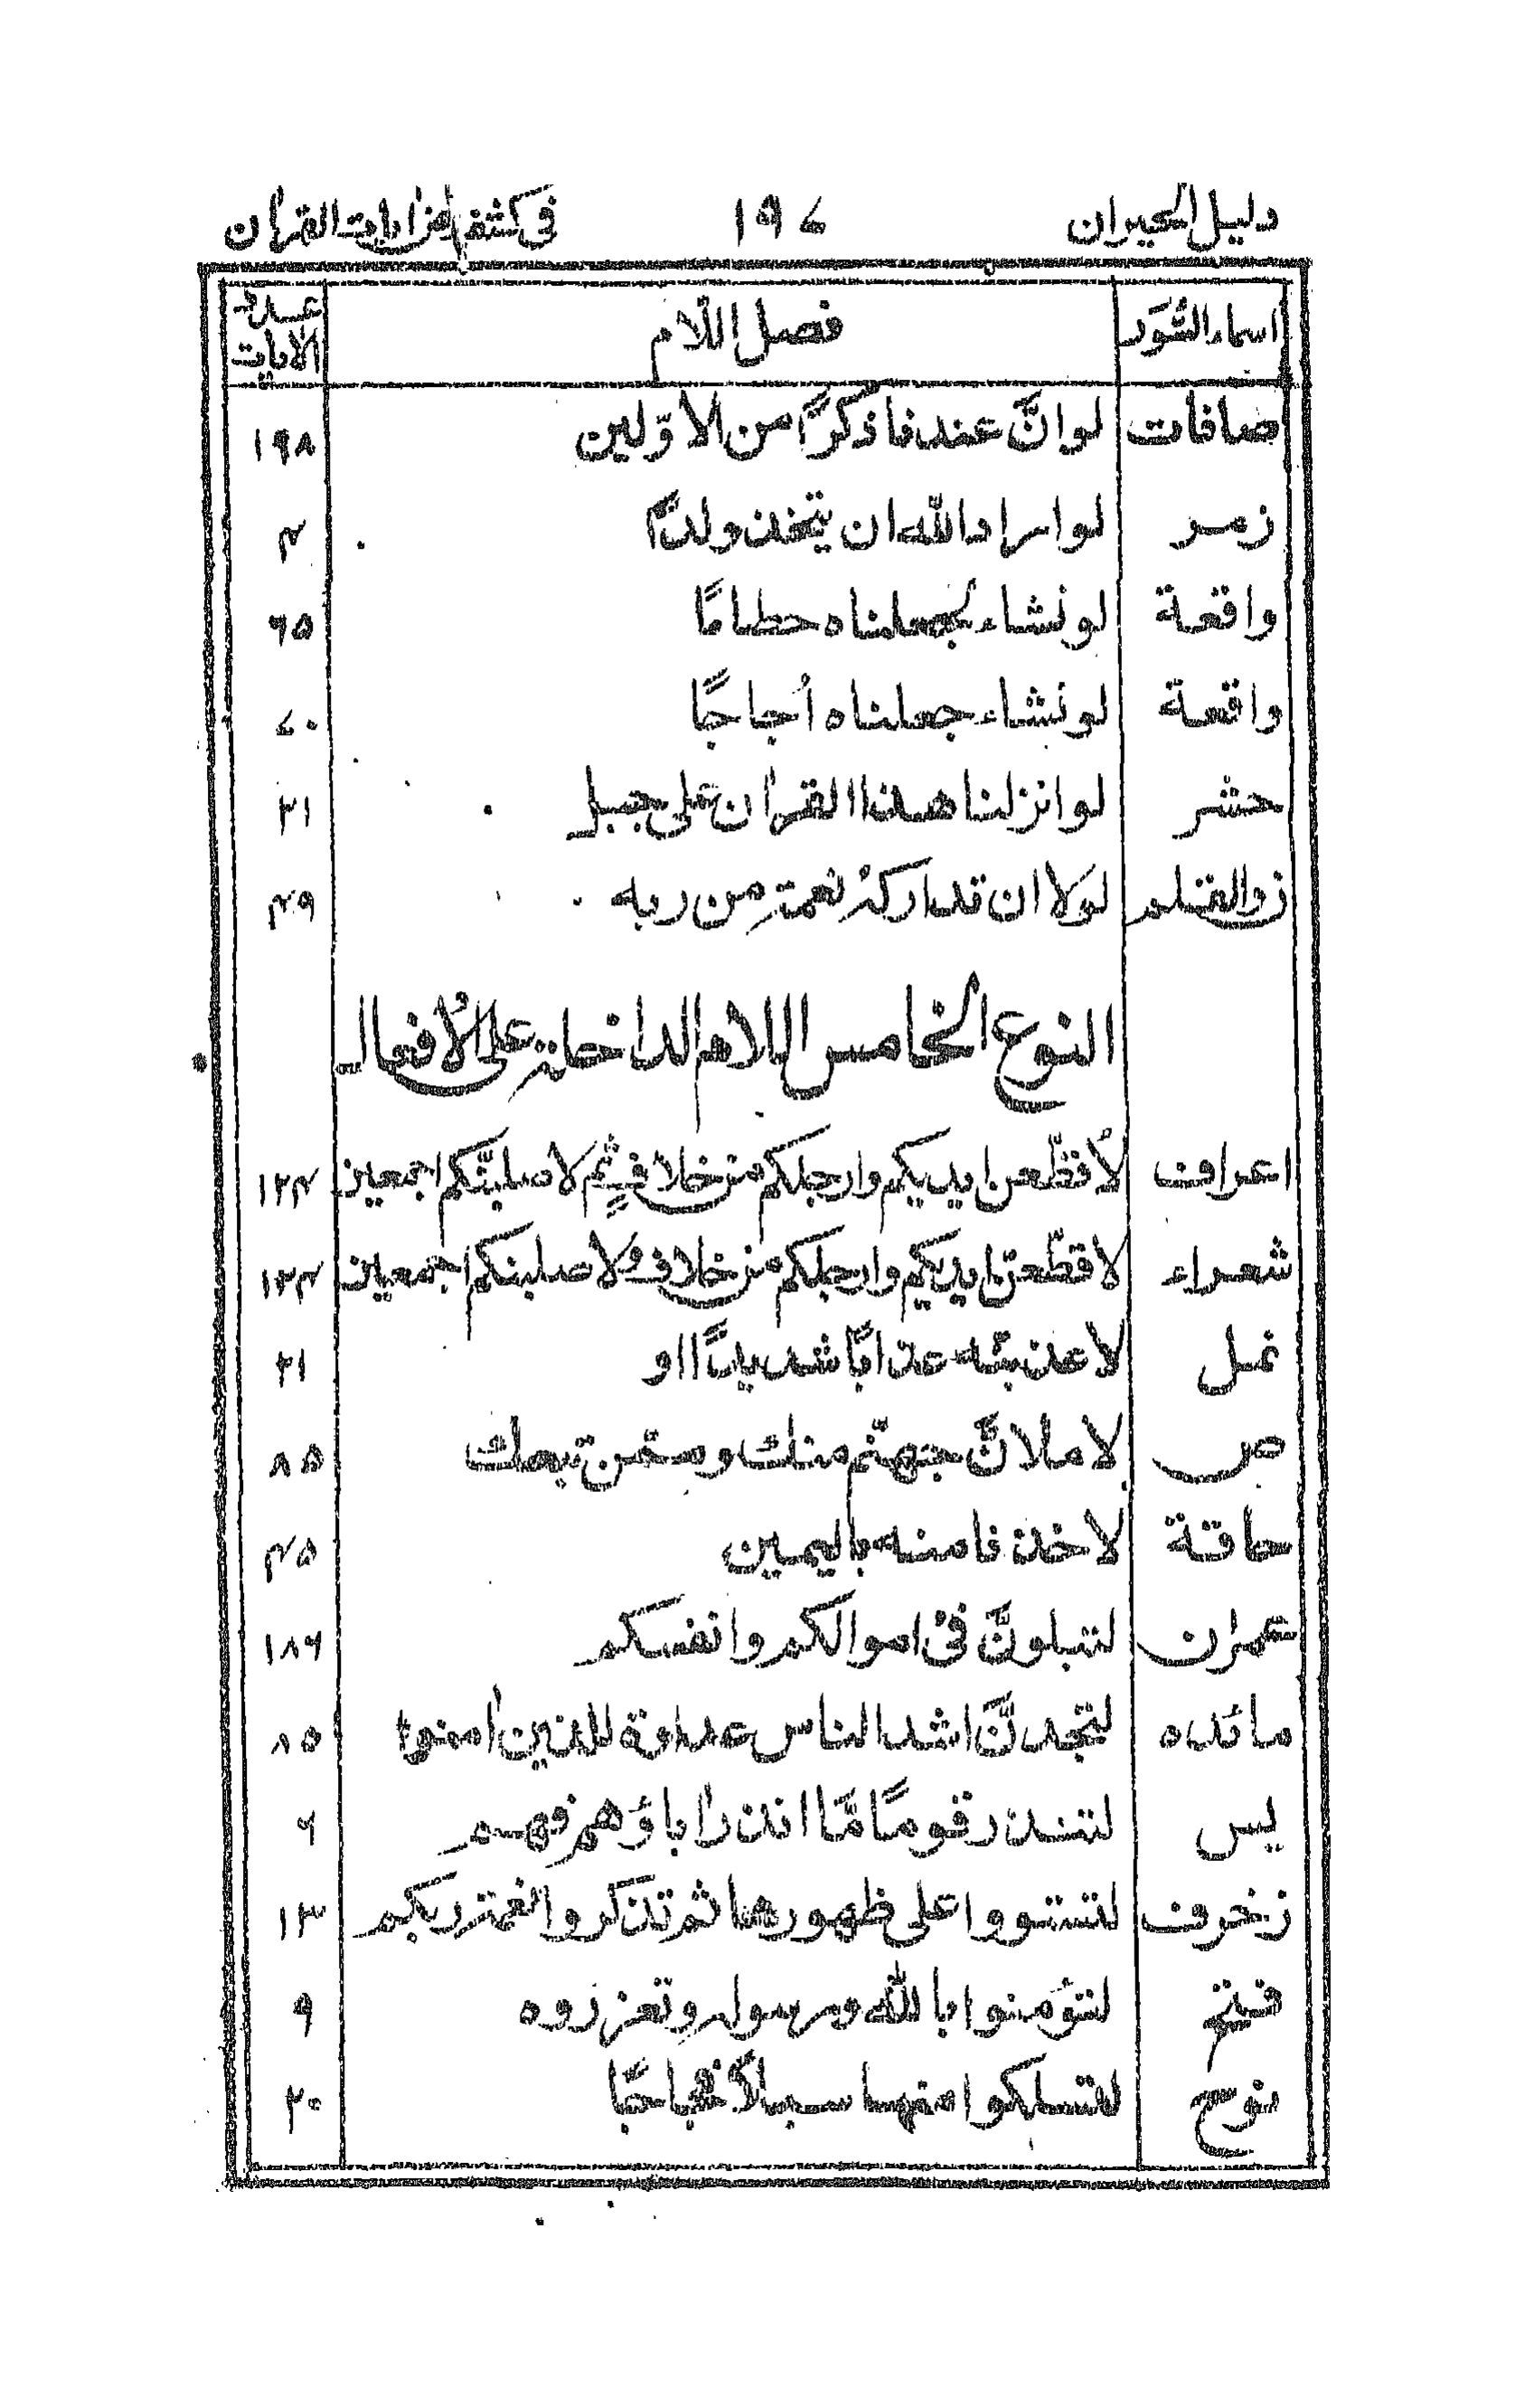 دليل الحيران ١٩٧ فى كشف اٰيات القراٰن
اسماء السُّوَر فصل اللّام عدد الاٰيات
صافات لو انَّ عندنا ذكرًا من الاوّلين ١٦٨
زمر لو اراد الله ان يتخذ ولدًا ٤
واقعة لو نشاء لجعلناه حطامًا ٦٥
واقعة لو نشاء جعلناه اُجاجًا ٧٠
حشر لو انزلنا هذا القراٰن على جبل ٢١
ذوالقلم لولا ان تداركهٗ نعمة من ربه ٤٩
النوع الخامس اللام الداخلة على الأفعال
اعراف لأقطّعن ايديكم وارجلكم من خلاف ثم لاصلبنّكم اجمعين ١٢٤
شعراء لاقطّعنّ ايديكم وارجلكم من خلاف ولاصلبنكم اجمعين ١٢٤
نمل لاعذبنّه عذابًا شديدًا او ٢١
ص لاملانَّ جهنّم منك وممّن تبعك ٨٥
حاقة لاخذنا منه باليمين ٤٥
عمران لتبلونَّ فىْ اموالكم وانفسكم ١٨٦
مائده لتجدنَّ اشد الناس عداوة للذين اٰمنوا ٨٥
يس لتنذر قومًا مَّا انذر اٰباؤهم فهم ٦
زخرف لتستووا على ظهورها ثم تذكروا نعمة ربكم ١٣
فتح لتؤمنوا بالله ورسوله وتعزروه ٩
نوح لتسلكوا منها سبلاً فجاجًا ٢٠